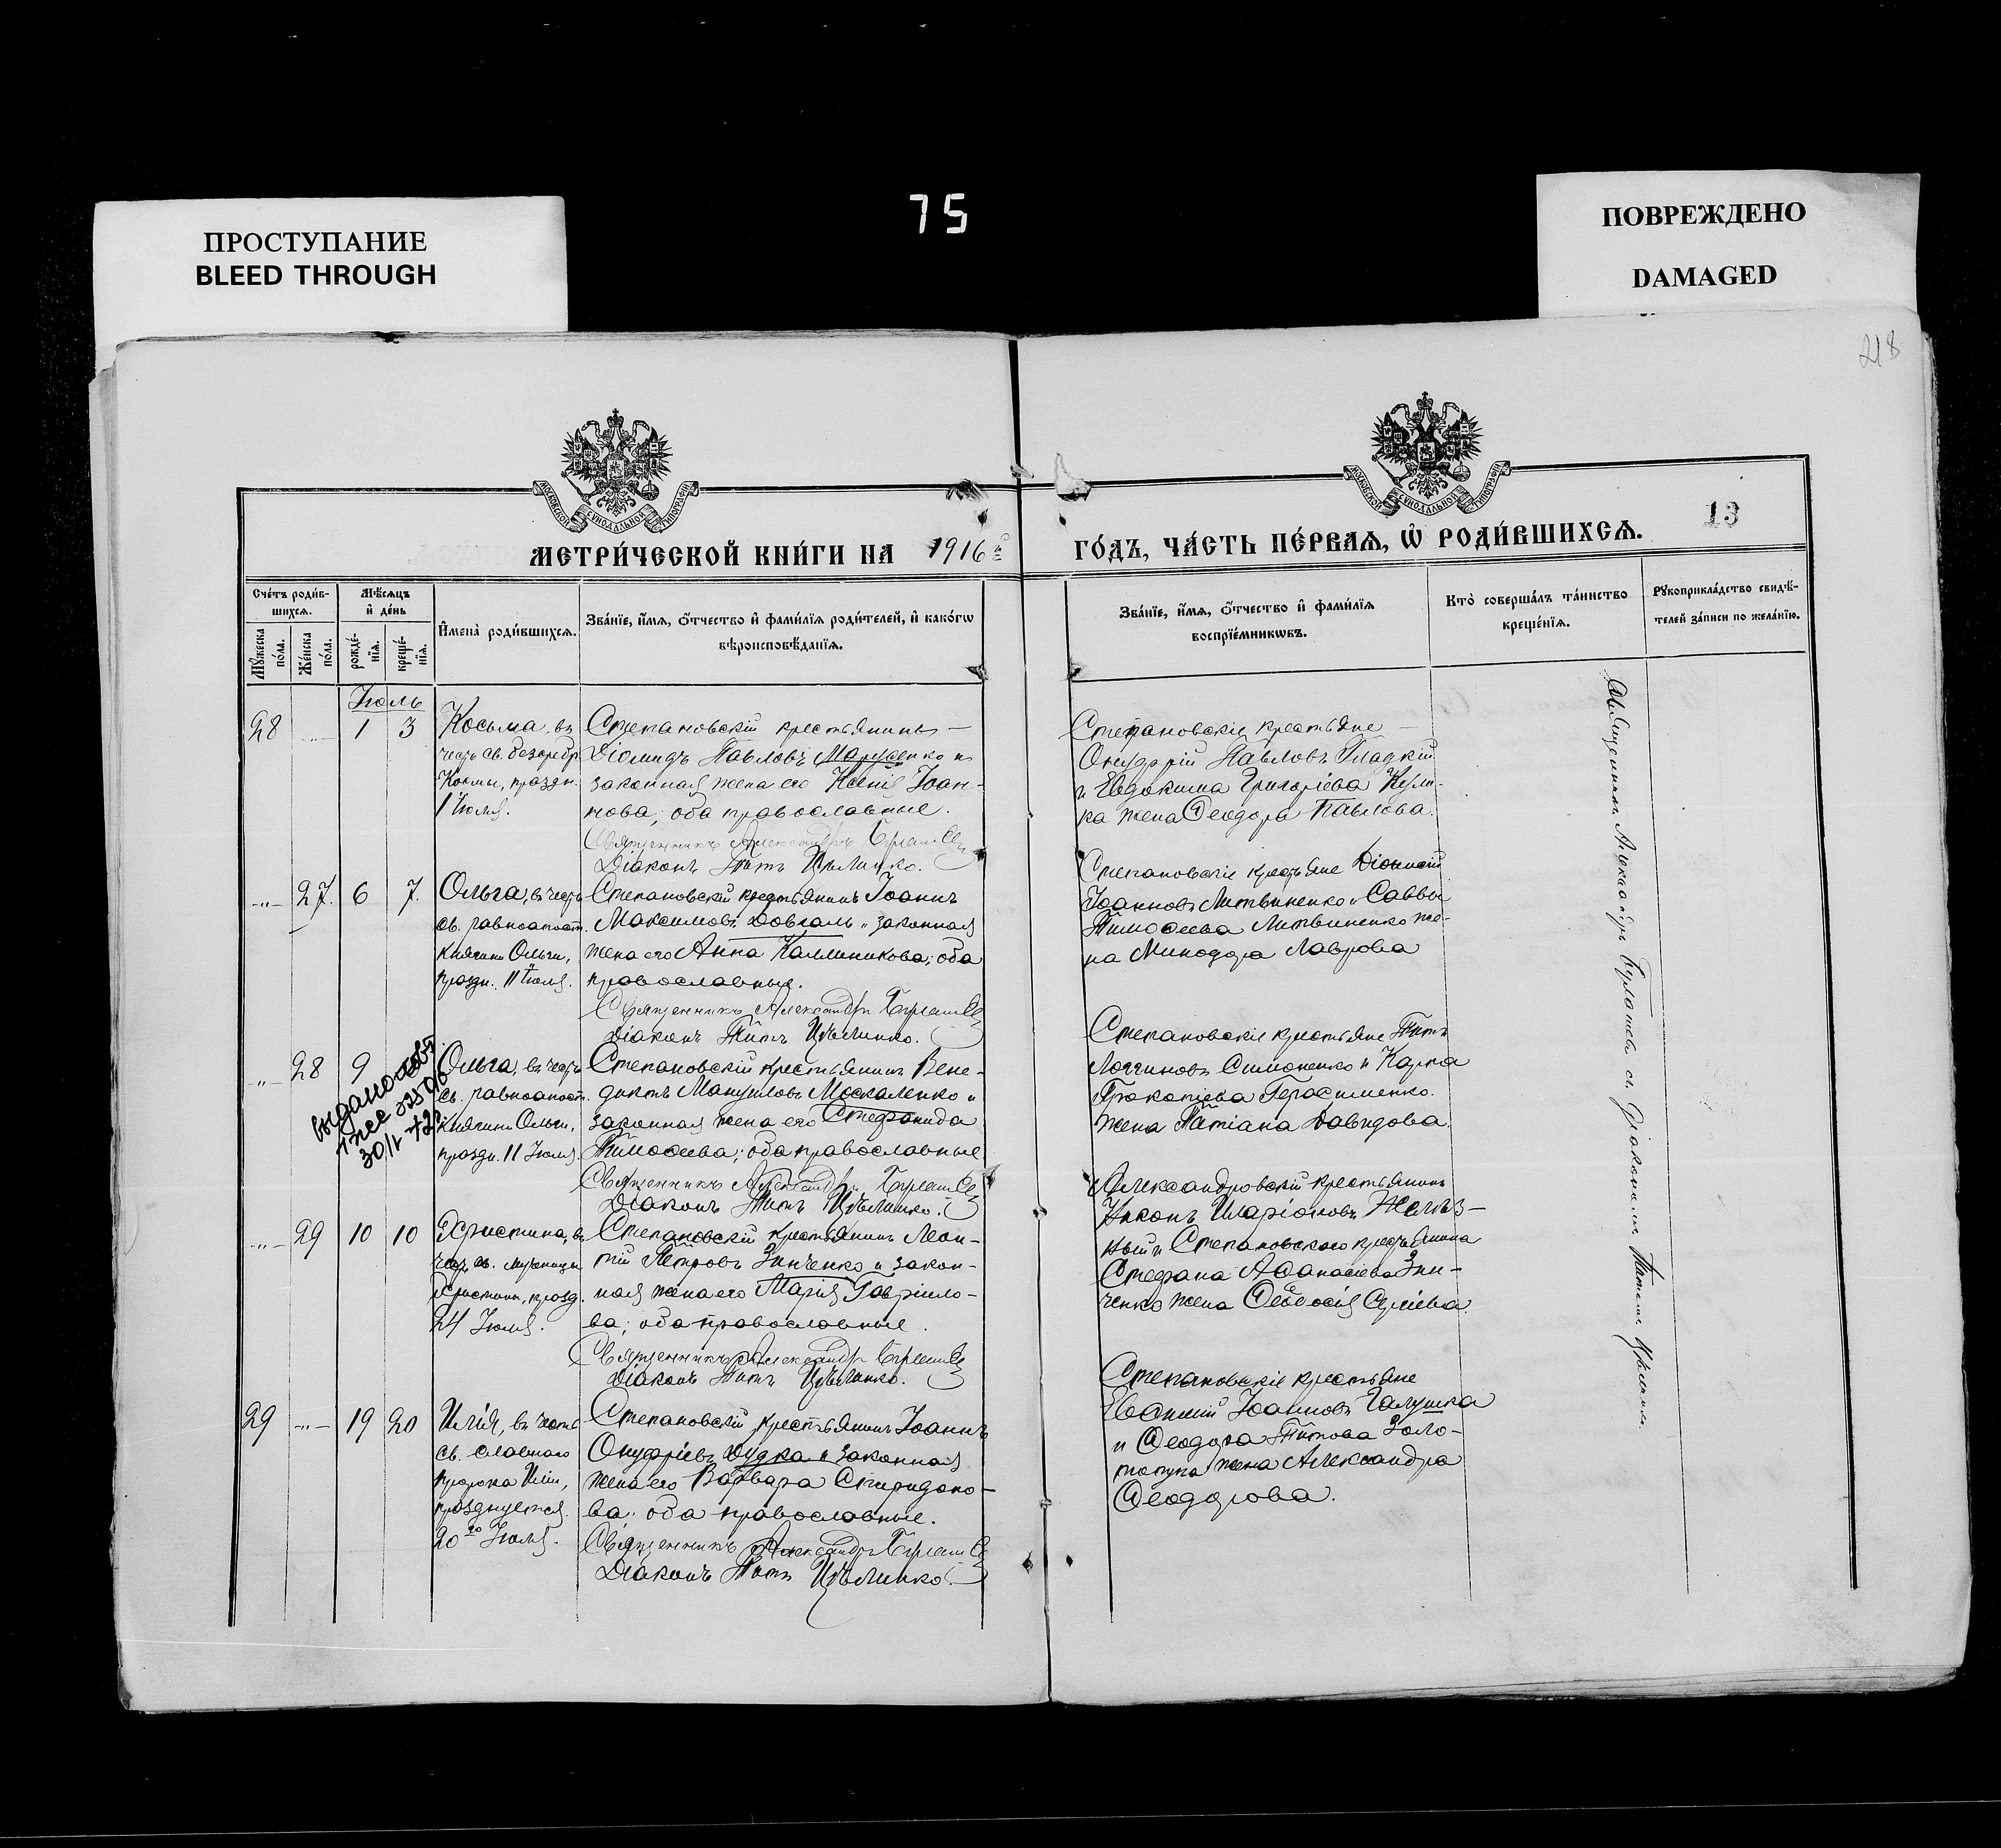 ПРОСТУПАНИЕ
BLEED THROUGH
75
ПОВРЕЖДЕНО
DAMAGED
218
МОСКОВСКОЙ СѴНОДАЛЬНОЙ ТИПОГРАФІИ
МОСКОВСКОЙ СѴНОДАЛЬНОЙ ТИПОГРАФІИ
13
МЕТРИ́ЧЕСКОЙ КНИ́ГИ НА 1916й
ГО́ДЪ, ЧА́СТЬ ПЕ́РВАѦ, Ѡ҆ РОДИ́ВШИХСѦ.
Сче́тъ роди́в-
шихсѧ.
Мꙋ́жеска по́ла.
Же́нска по́ла.
Мѣ́сѧцъ
и҆ де́нь
рожде́-
нїѧ.
креще́-
нїѧ.
И҆мена̀ роди́вшихсѧ.
Зва́нїе, и҆́мѧ, ѻ҆́тчество и҆ фами́лїѧ роди́телей, и҆ како́гѡ
вѣроисповѣ́данїѧ.
Зва́нїе, и҆́мѧ, ѻ҆́тчество и҆ фами́лїѧ
воспрїе́мникѡвъ.
Кто̀ соверша́лъ та́инство
креще́нїѧ.
Рꙋкоприкла́дство свидѣ́-
телей за́писи по жела́нїю.
Іюль
28 1 3
Косьма, въ
честь св. безсребр.
Космы, праздн.
1 Іюля.
Степановскій крестьянинъ
Діомидъ Павловъ Марущенко и
законная жена его Ксенія Іоан-
нова; оба православные.
Священникъ Александръ
Діаконъ Титъ Цѣлинко.
Степановскіе крестьяне
Онуфрій Павловъ Гладкій
и Евдокима Григорьева Кули-
ка жена Ѳеодора Павлова.
27. 6 7.
Ольга, въ честь
св. равноапост.
княгини Ольги,
праздн. 11 Іюля.
Степановскій крестьянинъ Іоаннъ
Максимовъ Довгаль и законная
жена его Анна Каллиникова; оба
православные.
Священникъ Александръ
Діаконъ Титъ Цѣлинко.
Степановскіе крестьяне Діонисій
Іоанновъ Литвиненко и Саввы
Тимоѳеева Литвиненко же-
на Минодора Лаврова
28 9
выдано
30/I
Ольга, въ честь
св. равноапост.
княгини Ольги,
праздн. 11 Іюля.
Степановскій крестьянинъ Вене-
диктъ Мануиловъ Москаленко и
законная жена его Стефанида
Тимоѳеева; оба православные
Священникъ Александръ
Діаконъ Титъ Цѣлинко.
Степановскіе крестьяне Титъ
Логгиновъ Симоненко и Карпа
Прокопіева Герасименко
жена Татіана Давидова.
29 10 10
Христина, въ
честь св. мученицы
Христины, празд.
24 Іюля.
Степановскій крестьянинъ Леон-
тій Петровъ Зинченко и закон-
ная жена его Марія Гавріило-
ва; оба православные.
Священникъ Александръ
Діаконъ Титъ Цѣлинко.
Александровскій крестьянинъ
Никонъ Иларіоновъ Желѣз-
ный и Степановского крестьянина
Стефана Аѳанасіева Зин-
ченко жена Ѳеодосія Сергіева.
29 19 20
Илія, въ честь
св. славнаго
пророка Иліи,
празднуется
20го Іюля.
Степановскій крестьянинъ Іоаннъ
Онуфріевъ Дудка и законная
жена его Варвара Спиридоно-
ва; оба православные.
Священникъ Александръ
Діаконъ Титъ Цѣлинко.
Степановскіе крестьяне
Евѳимій Іоанновъ Галушка
и Ѳеодора Титова Золо-
топупа жена Александра
Ѳеодорова.
Священникъ Александръ съ Діакономъ Титомъ Цѣлинко.